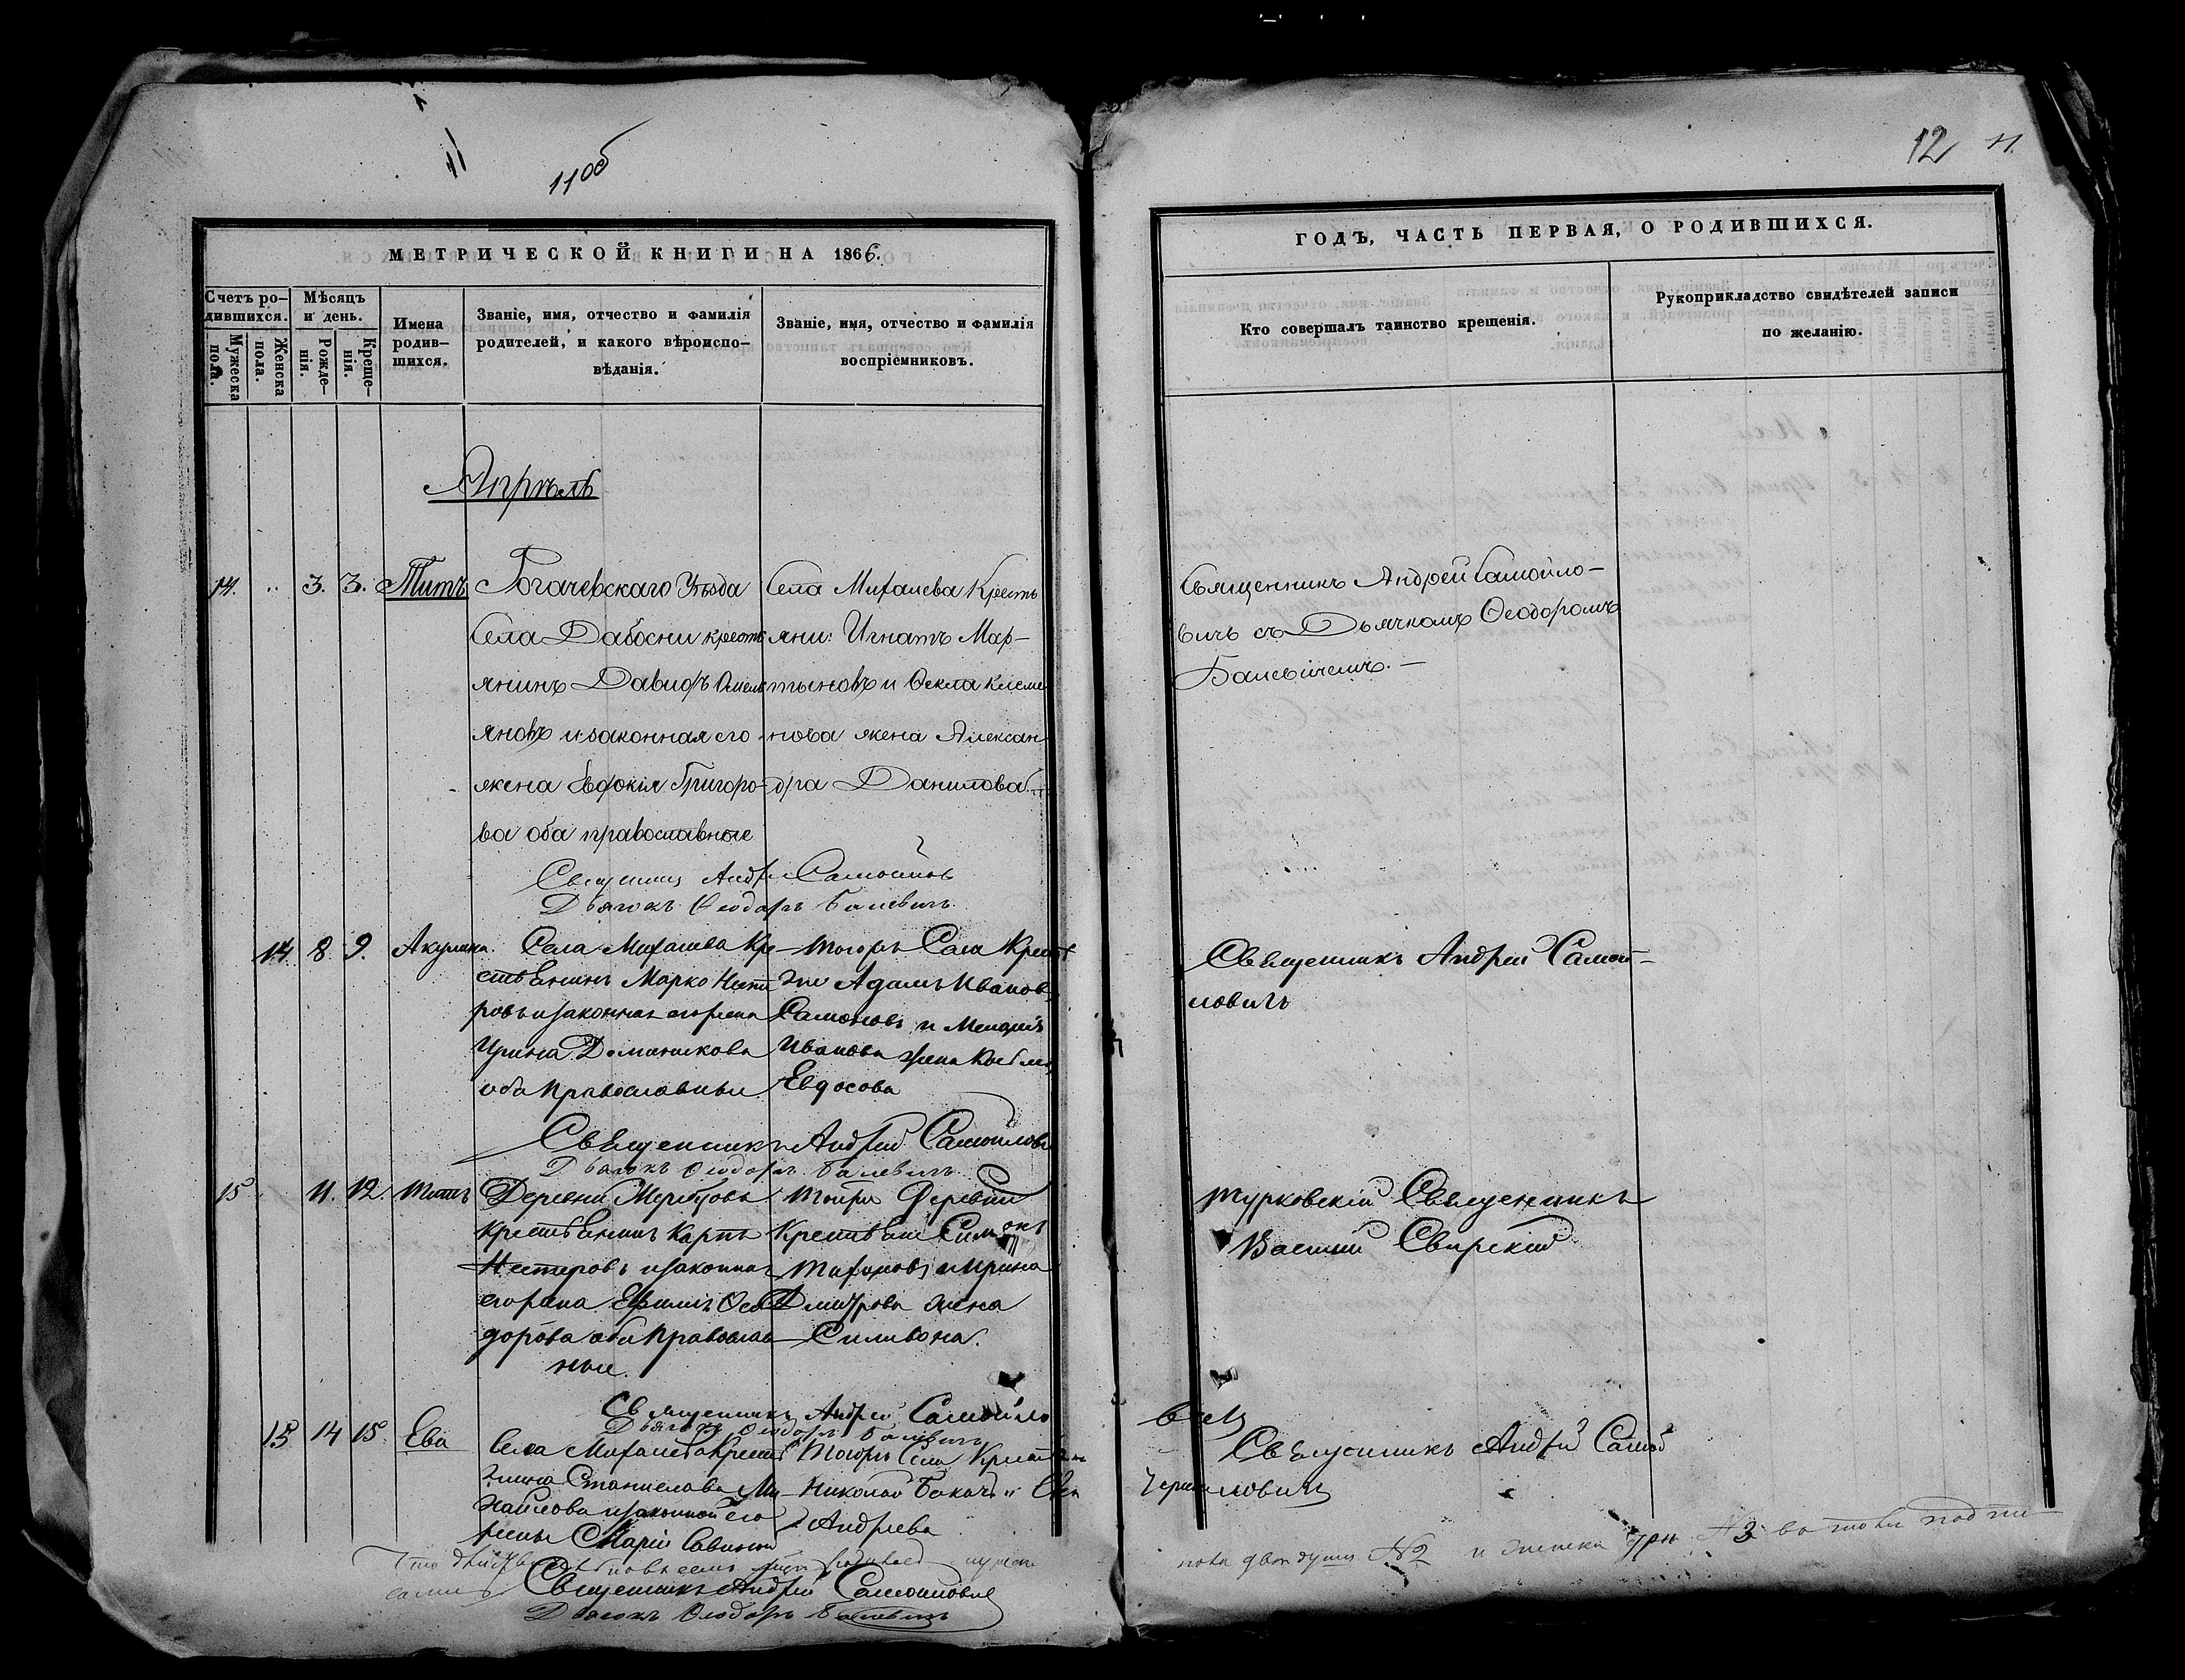 11об
12
МЕТРИЧЕСКОЙ КНИГИ НА 1866.
Счетъ ро-
дившихся.
Мужеска
пола.
Женска
пола.
Мѣсяцъ
и день.
Рожде-
нія.
Креще-
нія.
Имена
родив-
шихся.
Званіе, имя, отчество и фамилія
родителей, и какого вѣроиспо-
вѣданія.
Званіе, имя, отчество и фамилія
воспріемниковъ.
ГОДЪ, ЧАСТЬ ПЕРВАЯ, О РОДИВШИХСЯ.
Кто совершалъ таинство крещенія.
Рукоприкладство свидѣтелей записи
по желанію.
Апрѣль
14. 3. 3. Титъ
Рогачевскаго Уѣзда
села Дабосни кресть
янинъ Давидъ Омель
яновъ и законная его
жена Евдокія Григоро-
ва оба православные
Села Михалева Кресть
яни: Игнатъ Мар-
тыновъ и Ѳекла Клеме
нова жена Алексан
дра Данилова.
Священникъ Андрей Самойло-
вичъ съ Дьячкомъ Ѳеодоромъ
Балевичемъ.
Священникъ Андрей Самойлов
Дьячокъ Ѳеодоръ Балевичъ
14 8 9. Акулина.
Села Михалева Кре-
стьянинъ Марко Несте
ровъ и законная его жена
Ирина Доминикова
оба православные
Тогожъ Села Крест
яне Адамъ Иванов
Самойловъ и
Иванова жена
Евдосова
Священникъ Андрей Самой-
ловичъ
Священникъ Андрей Самойлови
Дьячокъ Ѳеодоръ Балевичъ
15 11. 12. Титъ
Деревни
крестьянинъ Карпъ
Нестеровъ и законная
его жена Ѳео
дорова оба православ
ные.
Тойже Деревни
Крестьяне
и Ирина
Дмитрова жена
Силивона.
Турковскій Священникъ
Василій Свирскій
Священникъ Андрей Самойло
вичъ
Дьячокъ Ѳеодоръ Балевичъ
15 14 15. Ева
Села Михалева Крест
янина Станислава Ми-
хайлова и законной его
жены Маріи Савиной
Тогожъ Села Крестьян
Николай и
Андреева
Священникъ Андрей Самой
ловичъ
Священникъ Андрей Самойлович
Дьячокъ Ѳеодоръ Балевичъ
№2 и №3